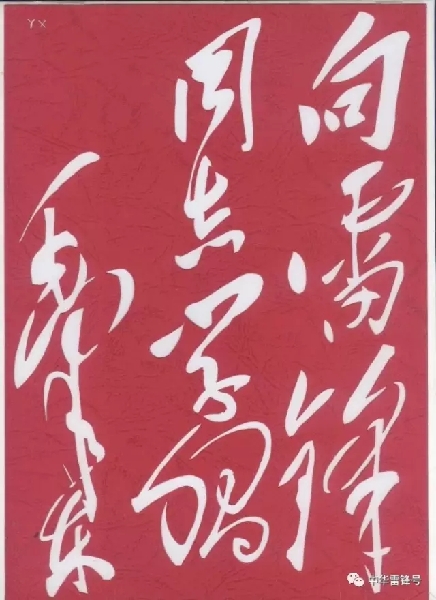 向雷锋
同志学习
毛泽东
YX
中华雷锋号